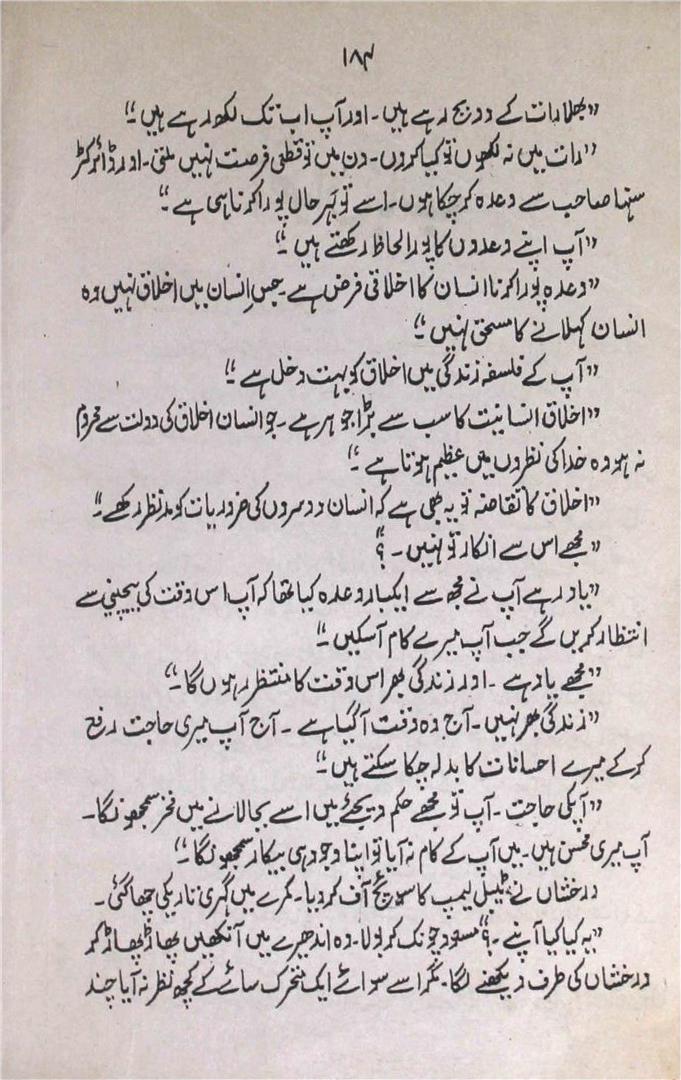 ۱۸۴
”بھلا رات کے دو بج رہے ہیں۔ اور آپ اب تک لکھ رہے ہیں۔“
”رات میں نہ لکھوں تو کیا کروں۔ دن میں تو قطعی فرصت نہیں ملتی۔ اور ڈائرکٹر
سنہا صاحب سے وعدہ کر چکا ہوں۔ اسے تو بہر حال پورا کرنا ہی ہے۔“
”آپ اپنے وعدوں کا پورا لحاظ رکھتے ہیں۔“
”وعدہ پورا کرنا انسان کا اخلاقی فرض ہے۔ جس انسان میں اخلاق نہیں وہ
انسان کہلانے کا مستحق نہیں۔“
”آپ کے فلسفہ زندگی میں اخلاق کو بہت دخل ہے۔“
”اخلاق انسانیت کا سب سے بڑا جوہر ہے۔ جو انسان اخلاق کی دولت سے محروم
نہ ہو وہ خدا کی نظروں میں عظیم ہوتا ہے۔“
”اخلاق کا تقاضہ تو یہ بھی ہے کہ انسان دوسروں کی ضروریات کو مدنظر رکھے۔“
”مجھے اس سے انکار تو نہیں۔؟“
”یاد رہے آپ نے مجھ سے ایکبار وعدہ کیا تھا کہ آپ اس وقت کی بیچینی سے
انتظار کریں گے جب آپ میرے کام آسکیں۔“
”مجھے یاد ہے۔ اور زندگی بھر اس وقت کا منتظر رہوں گا۔“
”زندگی بھر نہیں۔ آج وہ وقت آگیا ہے۔ آج آپ میری حاجت رفع
کر کے میرے احسانات کا بدلہ چکا سکتے ہیں۔“
”آپکی حاجت۔ آپ تو مجھے حکم دیجئے میں اسے بجا لانے میں فخر سمجھونگا۔
آپ میری محسن ہیں۔ میں آپ کے کام نہ آیا تو اپنا وجود ہی بیکار سمجھونگا۔“
درخشاں نے ٹیبل لیمپ کا سویچ آف کر دیا۔ کمرے میں گہری تاریکی چھا گئی۔
”یہ کیا کیا آپنے۔؟“ مسعود چونک کر بولا۔ وہ اندھیرے میں آنکھیں پھاڑ پھاڑ کر
درخشاں کی طرف دیکھنے لگا۔ مگر اسے سوائے ایک متحرک سائے کے کچھ نظر نہ آیا چند